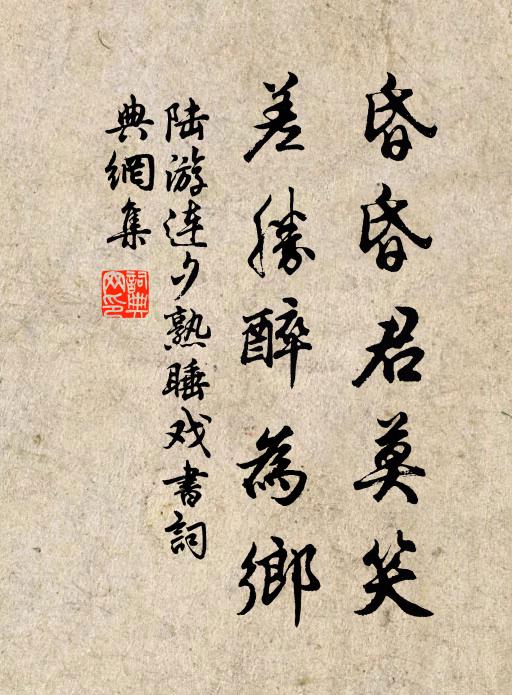 昏昏君莫笑
差勝醉為鄉
陆游连夕熟睡戏書詞
典網集
詞典
网印